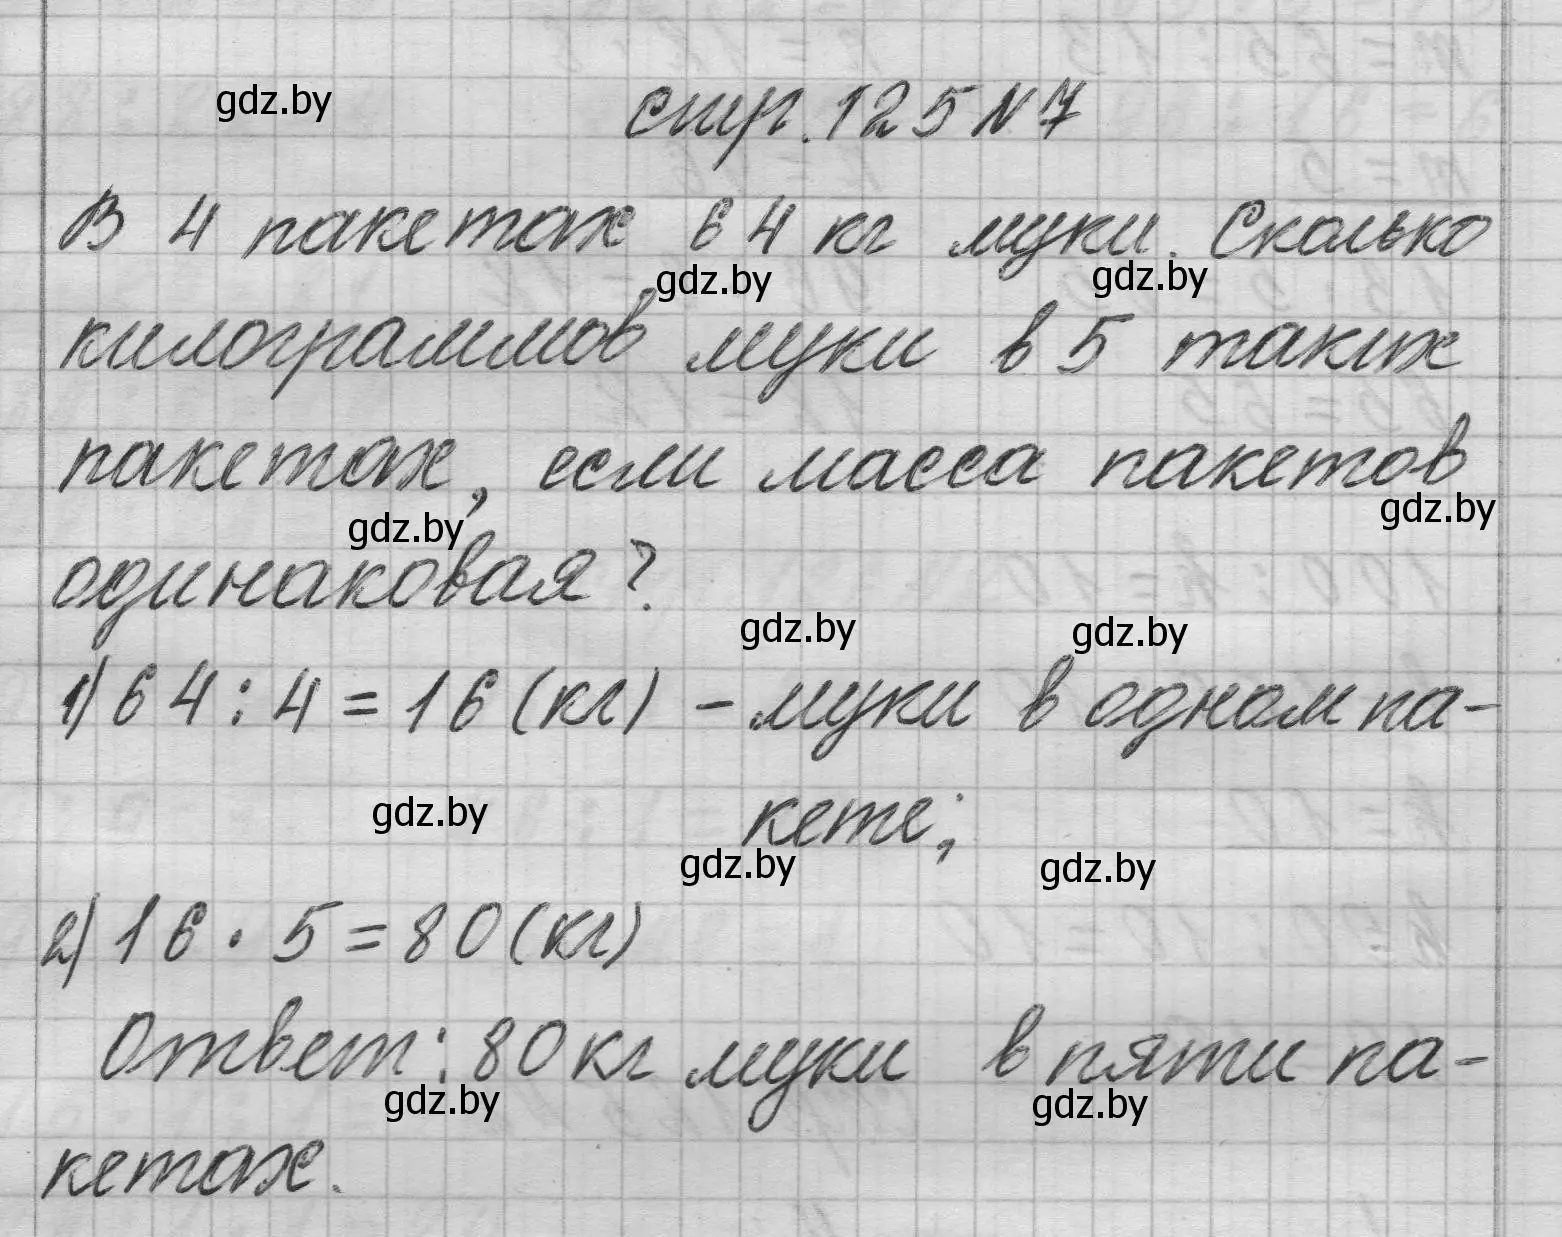 gdz.by
стр. 125 N 7
В 4 пакетах 64 кг муки. Сколько
gdz.by gdz.by
килограммов муки в 5 таких
пакетах, если масса пакетов
gdz.by gdz.by
одинаковая?
gdz.by gdz.by
1) 64 : 4 = 16 (кг) - муки в одном па-
gdz.by
кете;
gdz.by gdz.by
2) 16 · 5 = 80 (кг)
Ответ: 80 кг муки в пяти па-
gdz.by gdz.by
кетах.